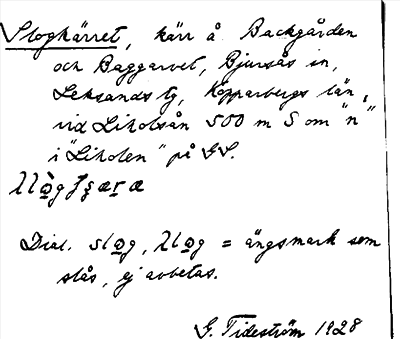 Slogkärret, kärr å Backgården
och Baggarvet, Bjursås sn,
Leksands tg, Kopparbergs län,
vid Liholsån 500 m S om "n"
i "Liholen" på GS.
Dial. slog, = ängsmark som
slås, ej arbetas.
G. Tideström 1928